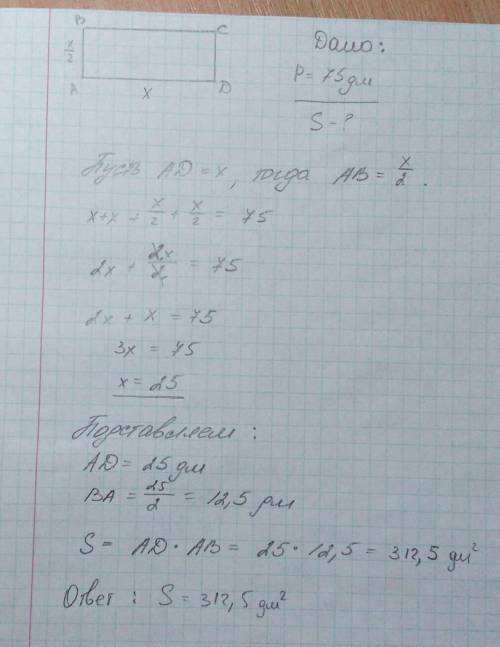 B
C
x/2
A
x
D
Дано:
P = 75 дм
S - ?
Пусть AD = x, тогда AB = x/2.
x + x + x/2 + x/2 = 75
2x + 2x/2 = 75
2x + x = 75
3x = 75
x = 25
Подставляем:
AD = 25 дм
BA = 25/2 = 12,5 дм
S = AD · AB = 25 · 12,5 = 312,5 дм²
Ответ: S = 312,5 дм²